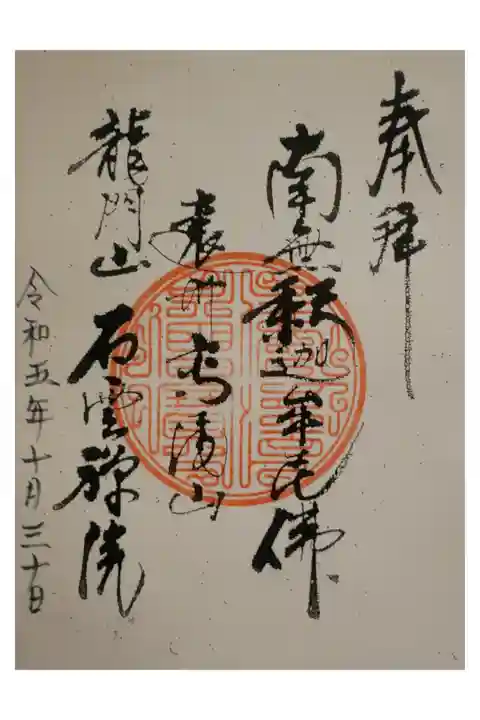 奉拝
南無釈迦牟尼佛
遠州高尾山
龍門山石雲禅院
令和五年十月三十日